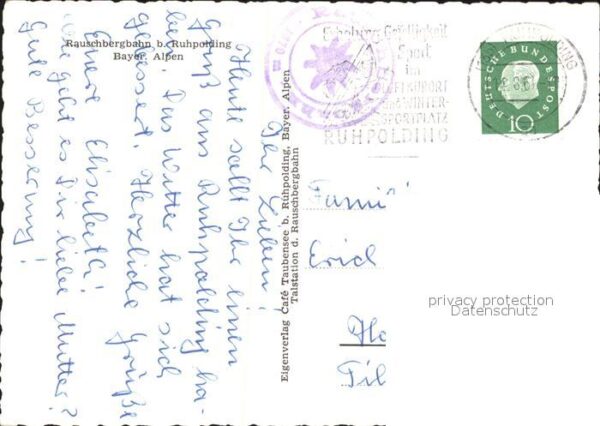 Rauschbergbahn b. Ruhpolding
Bayer. Alpen
Ihr Lieben!
Heute sollt Ihr einen
Gruß aus Ruhpolding ha-
ben. Das Wetter hat sich
gebessert. Herzliche Grüße
Eure Elisabeth!
Wie geht es Dir liebe Mutter?
Gute Besserung!
Eigenverlag Café Taubensee b. Ruhpolding, Bayer. Alpen
Talstation d. Rauschbergbahn
Erholung Geselligkeit
Sport
im
LUFTKURORT
WINTER-
SPORTPLATZ
RUHPOLDING
RUHPOLDING
DEUTSCHE BUNDESPOST
10
Fami
Erich
He
Til
privacy protection
Datenschutz